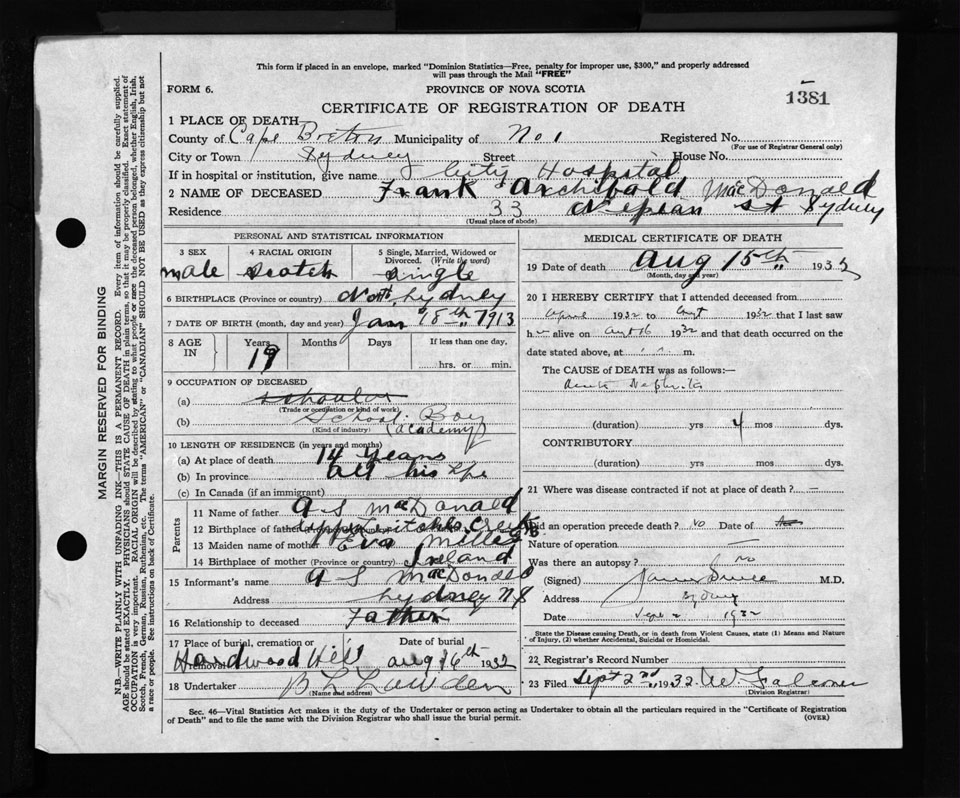 This form if placed in an envelope, marked "Dominion Statistics—Free, penalty for improper use, $300," and properly addressed
will pass through the Mail "FREE"
FORM 6.
PROVINCE OF NOVA SCOTIA
1381
CERTIFICATE OF REGISTRATION OF DEATH
1 PLACE OF DEATH
County of Cape Breton Municipality of No 1 Registered No.
(For use of Registrar General only)
City or Town Sydney Street House No.
If in hospital or institution, give name City Hospital
2 NAME OF DECEASED Frank Archibald MacDonald
Residence 33 Nepean St Sydney
(Usual place of abode)
PERSONAL AND STATISTICAL INFORMATION
3 SEX 4 RACIAL ORIGIN 5 Single, Married, Widowed or
Divorced. (Write the word)
male Scotch Single
6 BIRTHPLACE (Province or country) North Sydney
7 DATE OF BIRTH (month, day and year) Jan 18th 1913
8 AGE IN Years Months Days If less than one day,
19 hrs. or min.
9 OCCUPATION OF DECEASED
(a) scholar
(Trade or occupation or kind of work)
(b) School Boy
(Kind of industry) (academy)
10 LENGTH OF RESIDENCE (in years and months)
(a) At place of death 14 years
(b) In province all his life
(c) In Canada (if an immigrant)
Parents
11 Name of father A S MacDonald
12 Birthplace of father Creek
13 Maiden name of mother Eva Miller
14 Birthplace of mother (Province or country) Ireland
15 Informant's name A S MacDonald
Address Sydney N S
16 Relationship to deceased Father
17 Place of burial, cremation or Removal Date of burial
Hardwood Hill aug 16th 1932
18 Undertaker B L
(Name and address)
MEDICAL CERTIFICATE OF DEATH
19 Date of death Aug 15th 1932
(Month, day and year)
20 I HEREBY CERTIFY that I attended deceased from
April 1932 to Augt 1932 that I last saw
h alive on Augt 16 1932 and that death occurred on the
date stated above, at m.
The CAUSE of DEATH was as follows:—
Acute Nephritis
(duration) yrs 4 mos dys.
CONTRIBUTORY
(duration) yrs. mos. dys.
21 Where was disease contracted if not at place of death? —
Did an operation precede death? No Date of
Nature of operation —
Was there an autopsy? no
(Signed) James M.D.
Address Sydney
Date Sept 2 1932
State the Disease causing Death, or in death from Violent Causes, state (1) Means and Nature
of Injury, (2) whether Accidental, Suicidal or Homicidal.
22 Registrar's Record Number
23 Filed Sept 2nd 1932 W Falconer
(Division Registrar)
Sec. 46—Vital Statistics Act makes it the duty of the Undertaker or person acting as Undertaker to obtain all the particulars required in the "Certificate of Registration
of Death" and to file the same with the Division Registrar who shall issue the burial permit.
(OVER)
MARGIN RESERVED FOR BINDING
N.B.—WRITE PLAINLY WITH UNFADING INK—THIS IS A PERMANENT RECORD. Every item of information should be carefully supplied.
AGE should be stated EXACTLY. PHYSICIANS should STATE CAUSE OF DEATH in plain terms, so that it may be properly classified. Exact statement of
OCCUPATION is very important. RACIAL ORIGIN will be described by stating to what people or race the deceased person belonged, whether English, Irish,
Scotch, French, German, Russian, Ruthenian, etc. The terms "AMERICAN" or "CANADIAN" SHOULD NOT BE USED as they express citizenship but not
a race or people. See instructions on back of Certificate.